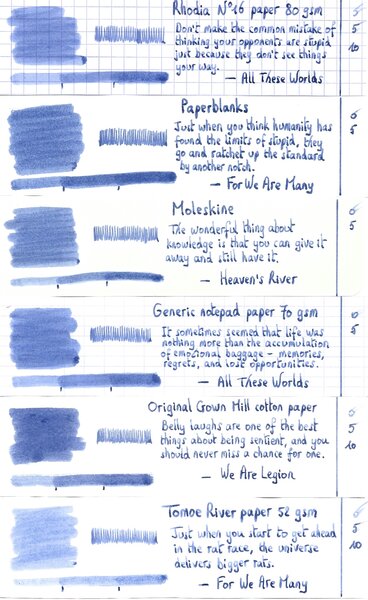 Rhodia N°16 paper 80 gsm
Don't make the common mistake of
thinking your opponents are stupid
just because they don't see things
your way.
— All These Worlds
5
10
Paperblanks
Just when you think humanity has
found the limits of stupid, they
go and ratchet up the standard
by another notch.
— For We Are Many
0
5
Moleskine
The wonderful thing about
knowledge is that you can give it
away and still have it.
— Heaven's River
0
5
Generic notepad paper 70 gsm
It sometimes seemed that life was
nothing more than the accumulation
of emotional baggage – memories,
regrets, and lost opportunities.
— All These Worlds
0
5
Original Crown Mill cotton paper
Belly laughs are one of the best
things about being sentient, and you
should never miss a chance for one.
— We Are Legion
0
5
10
Tomoe River paper 52 gsm
Just when you start to get ahead
in the rat race, the universe
delivers bigger rats.
— For We Are Many
0
5
10